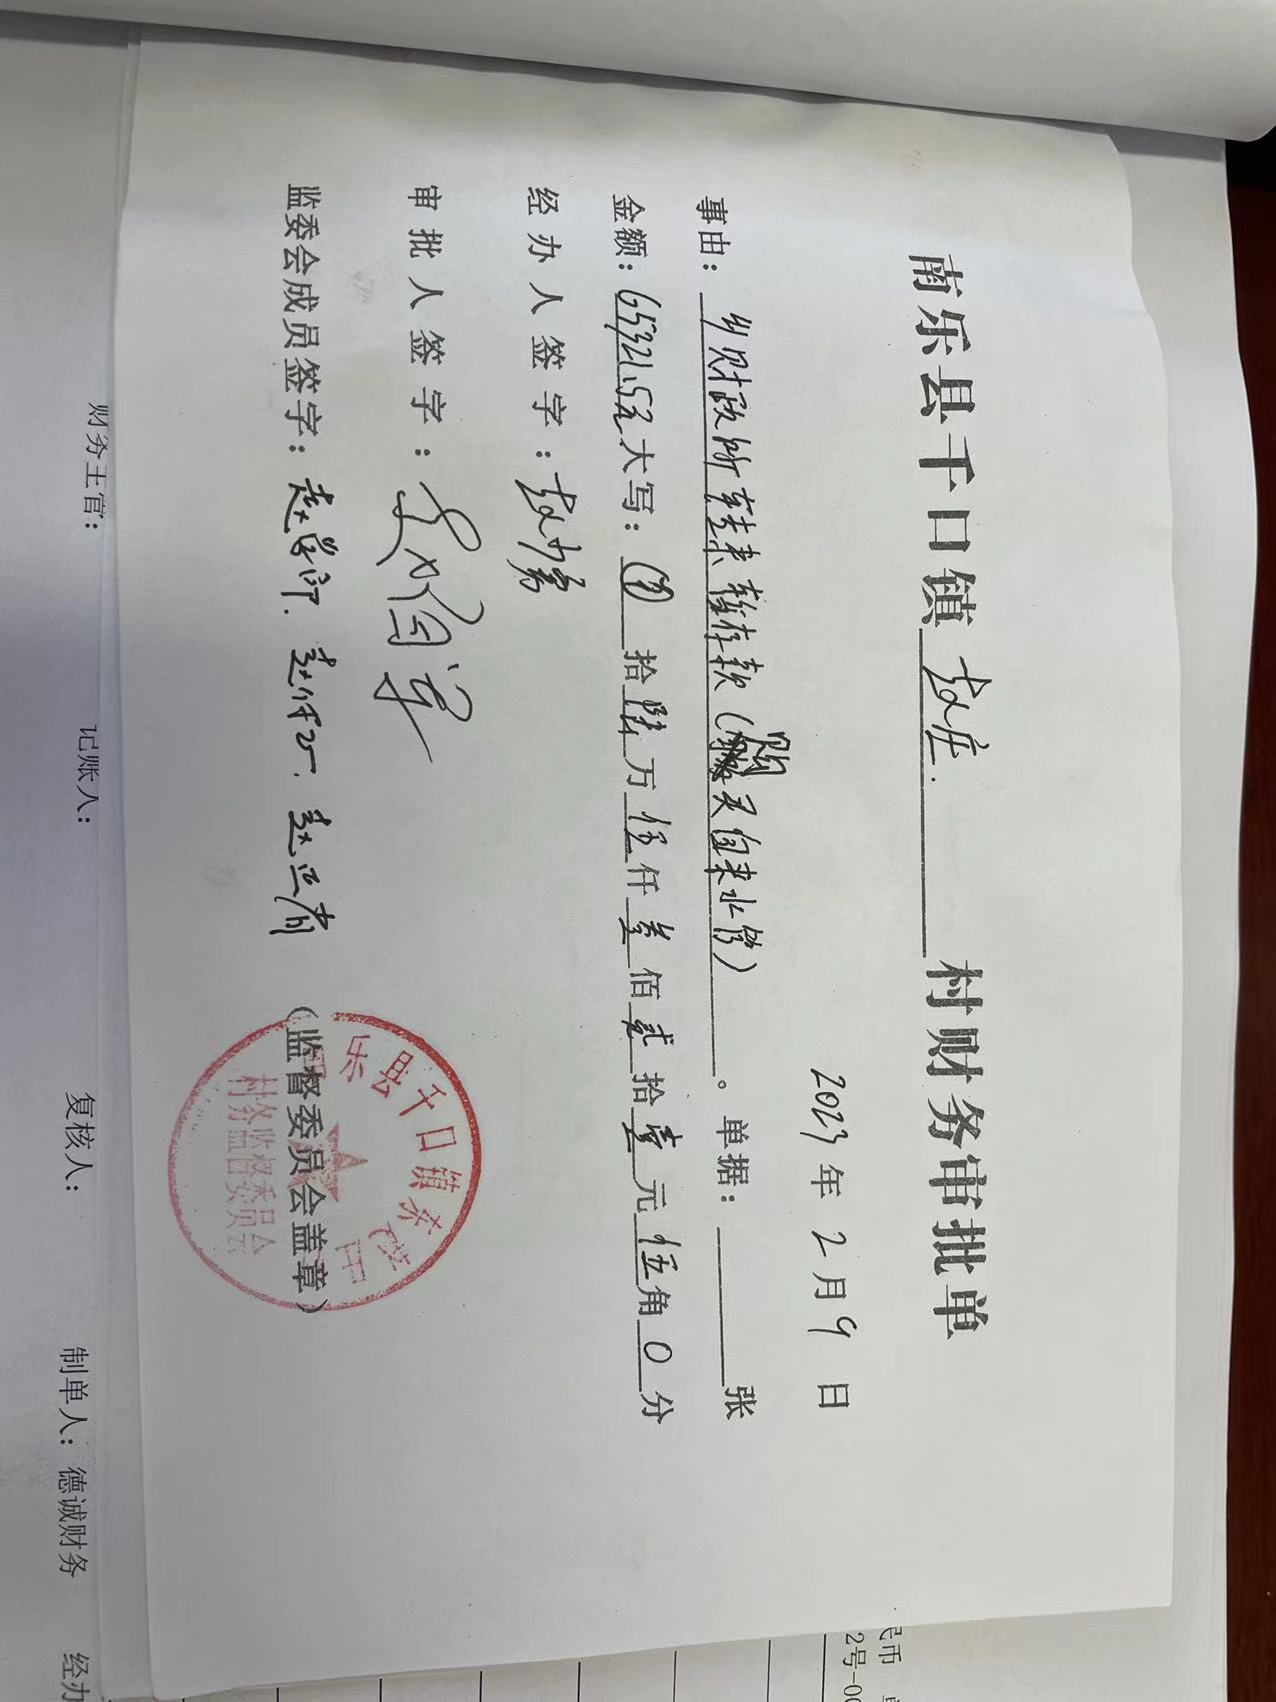 南乐县千口镇 赵庄 村财务审批单
2023年2月9日
事由：乡财政所转来暂存款(购买自来水管)。单据： 张
金额：65321.5元大写： 拾陆万伍仟叁佰贰拾壹元伍角0分
经办人签字：赵少勇
审批人签字：
监委会成员签字： （监督委员会盖章）
乐县千口镇
村务监督委员会
财务主管： 记账人： 复核人： 制单人：德诚财务 经办
民币
2号-00